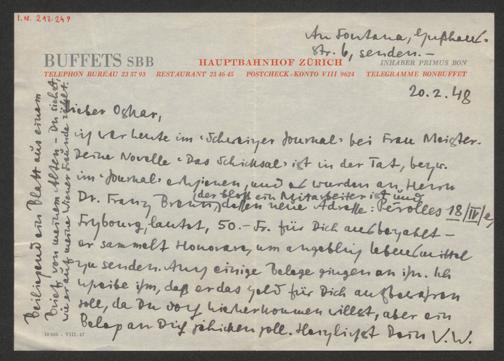 I.N. 212.249
An Fontana, Gußhaus-
str. 6, senden.—
BUFFETS SBB
HAUPTBAHNHOF ZÜRICH
INHABER PRIMUS BON
TELEPHON BUREAU 23 37 93 RESTAURANT 23 46 45 POSTCHECK-KONTO VIII 9624 TELEGRAMME BONBUFFET
20.2.48
Lieber Oskar,
ich war heute im "Schweizer Journal" bei Frau Meister.
Deine Novelle "Das Schicksal" ist in der Tat, bezw.
im "Journal" erschienen, und es wurden an Herrn
(der bloß ein Mitarbeiter ist und
Dr. Franz dessen neue Adresse: Pérolles 18/IV/e,
Frybourg, lautet, 50.— Fr. für Dich ausbezahlt —
er sammelt Honorare, um angeblich Lebensmittel
zu senden. Auch einige Belege gingen an ihn. Ich
schreibe ihm, daß er das Geld für Dich aufbewahren
soll, da Du doch hieherkommen willst, aber ein
Beleg an Dich schicken soll. Herzlichst Dein V.W.
Beiliegend ein Blatt aus einem
Brief von meinem Alten — Du siehst,
wie er auf meine Wiener Freunde
10 000 - VIII. 47